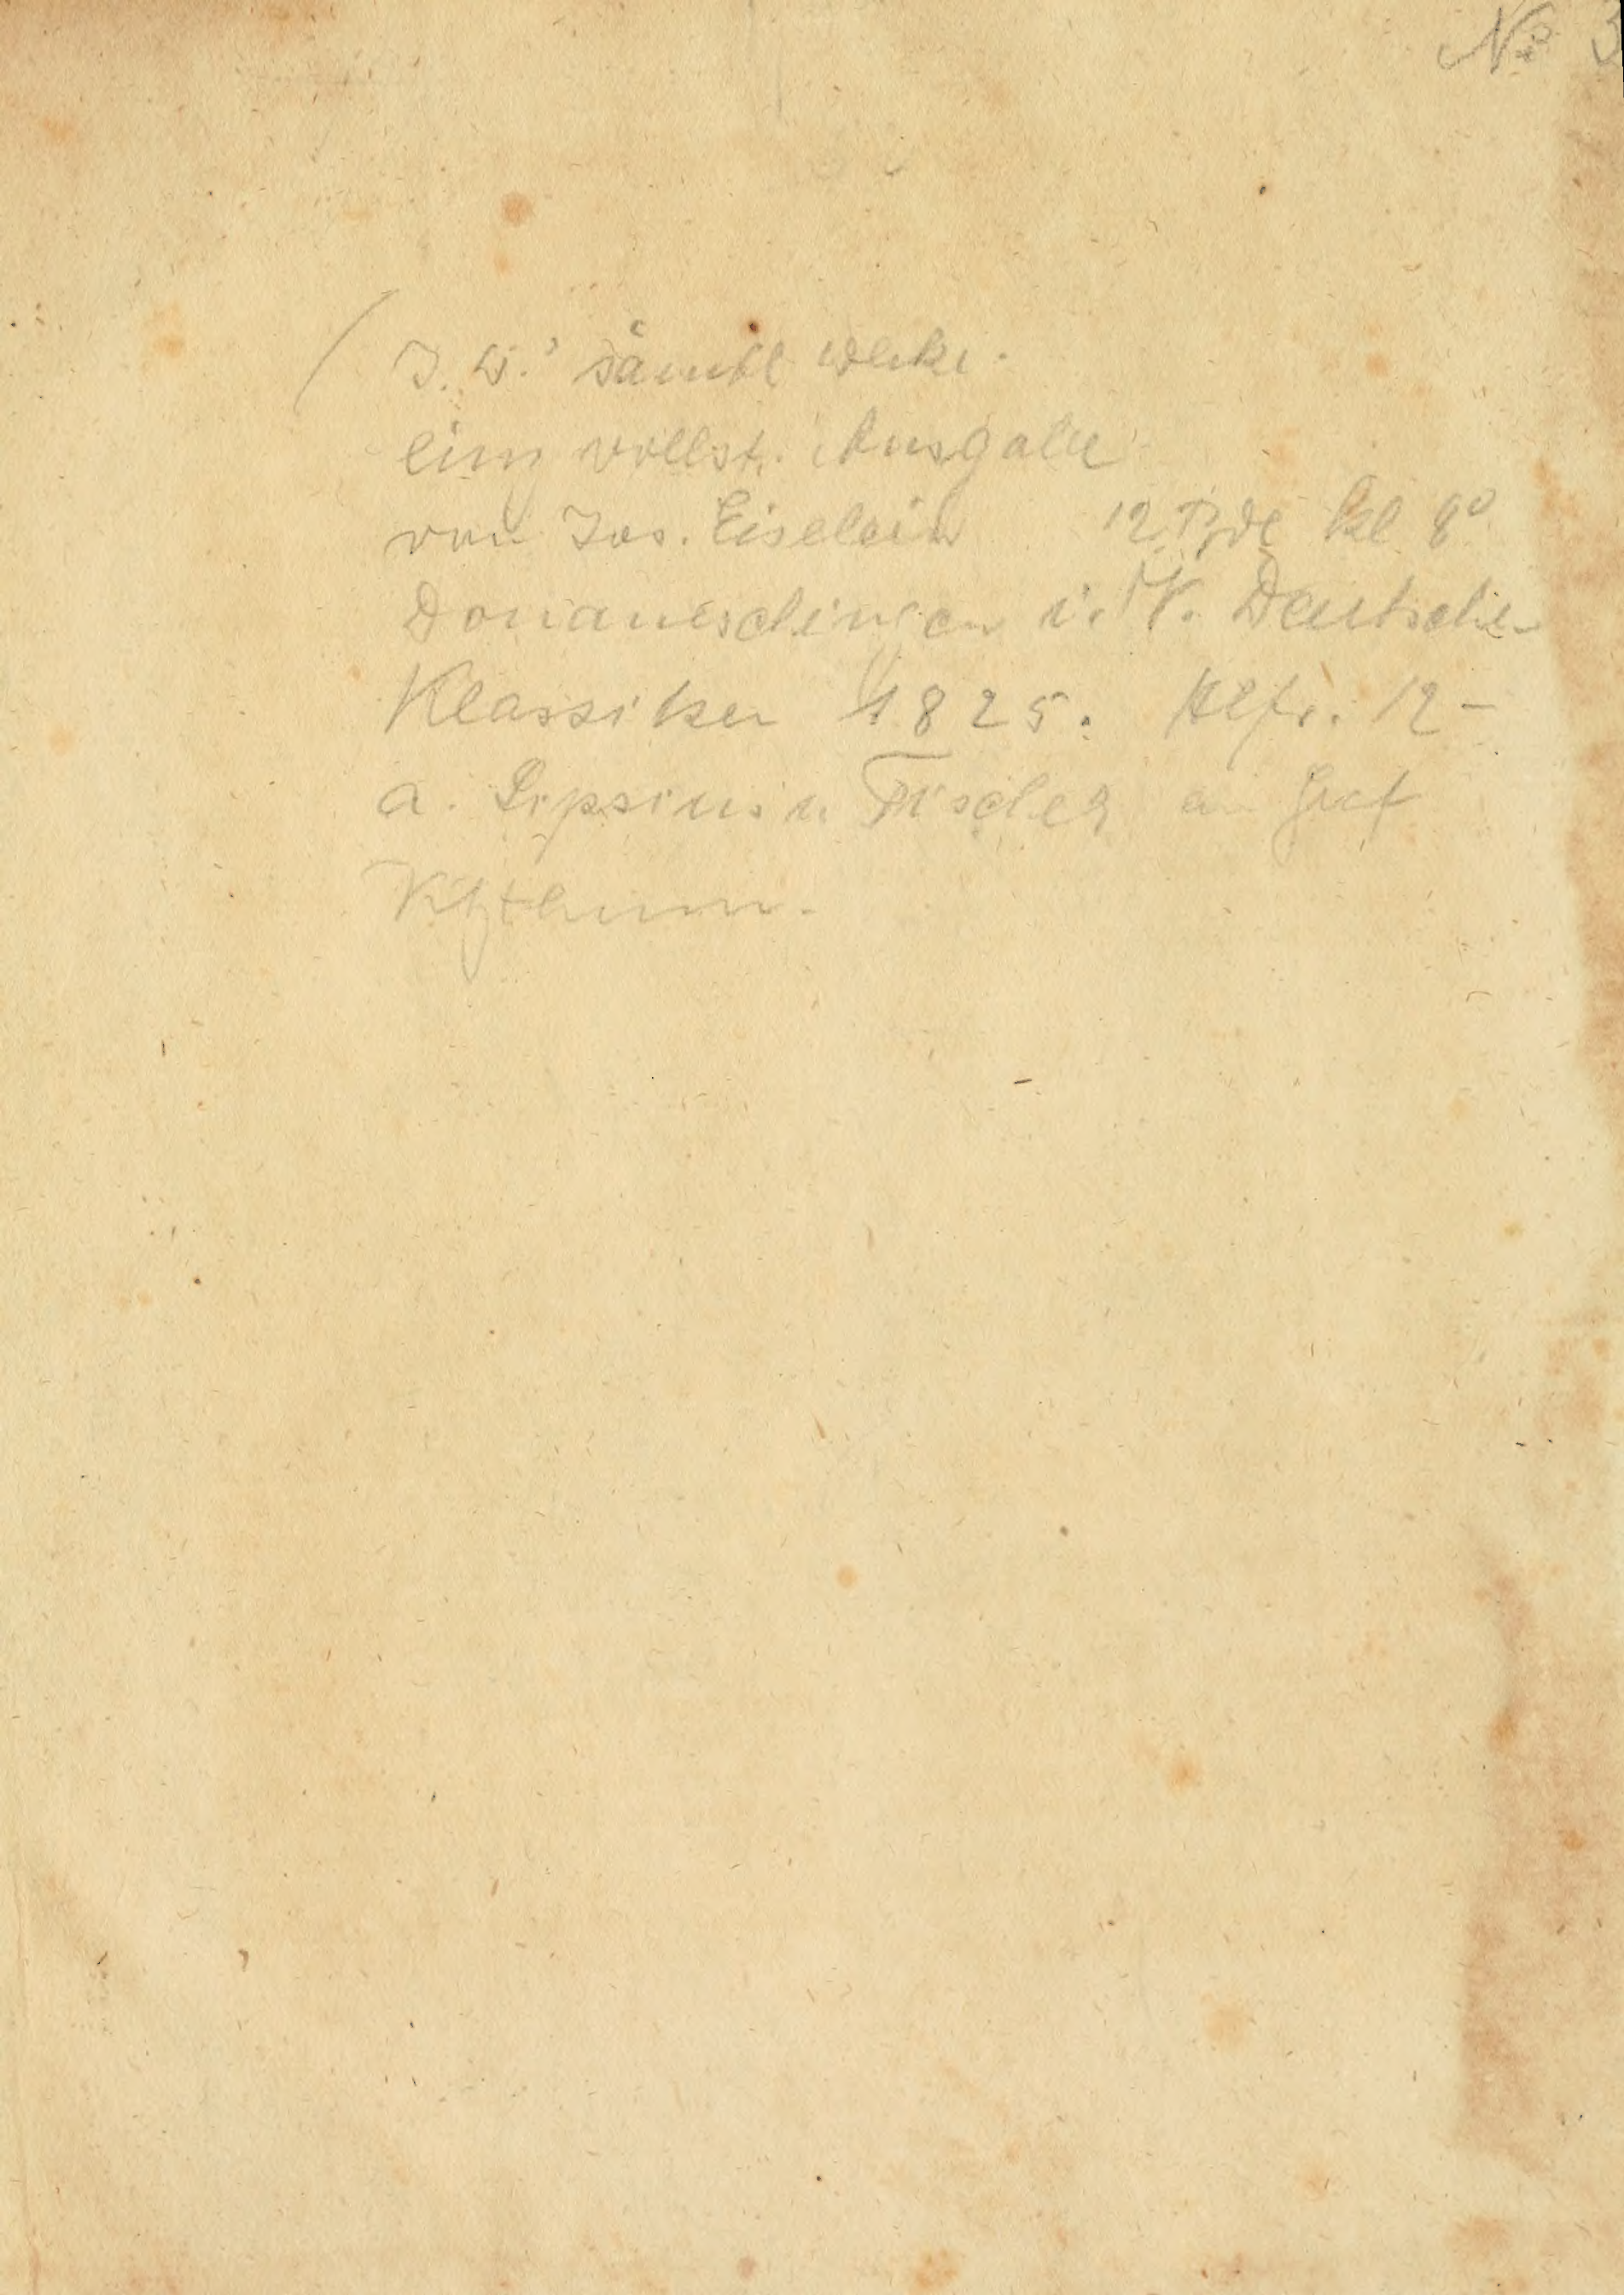 No 3
J. W.' sämtl Werke.
einz vollst. Ausgabe
von Jos. Eiselein 12 Bde kl 8°
Donaueschingen i. V. Deutscher
Klassiker 1825. Hlfr. 12 –
a. Lipsius u. Tischer a Graf
Vitzthum.